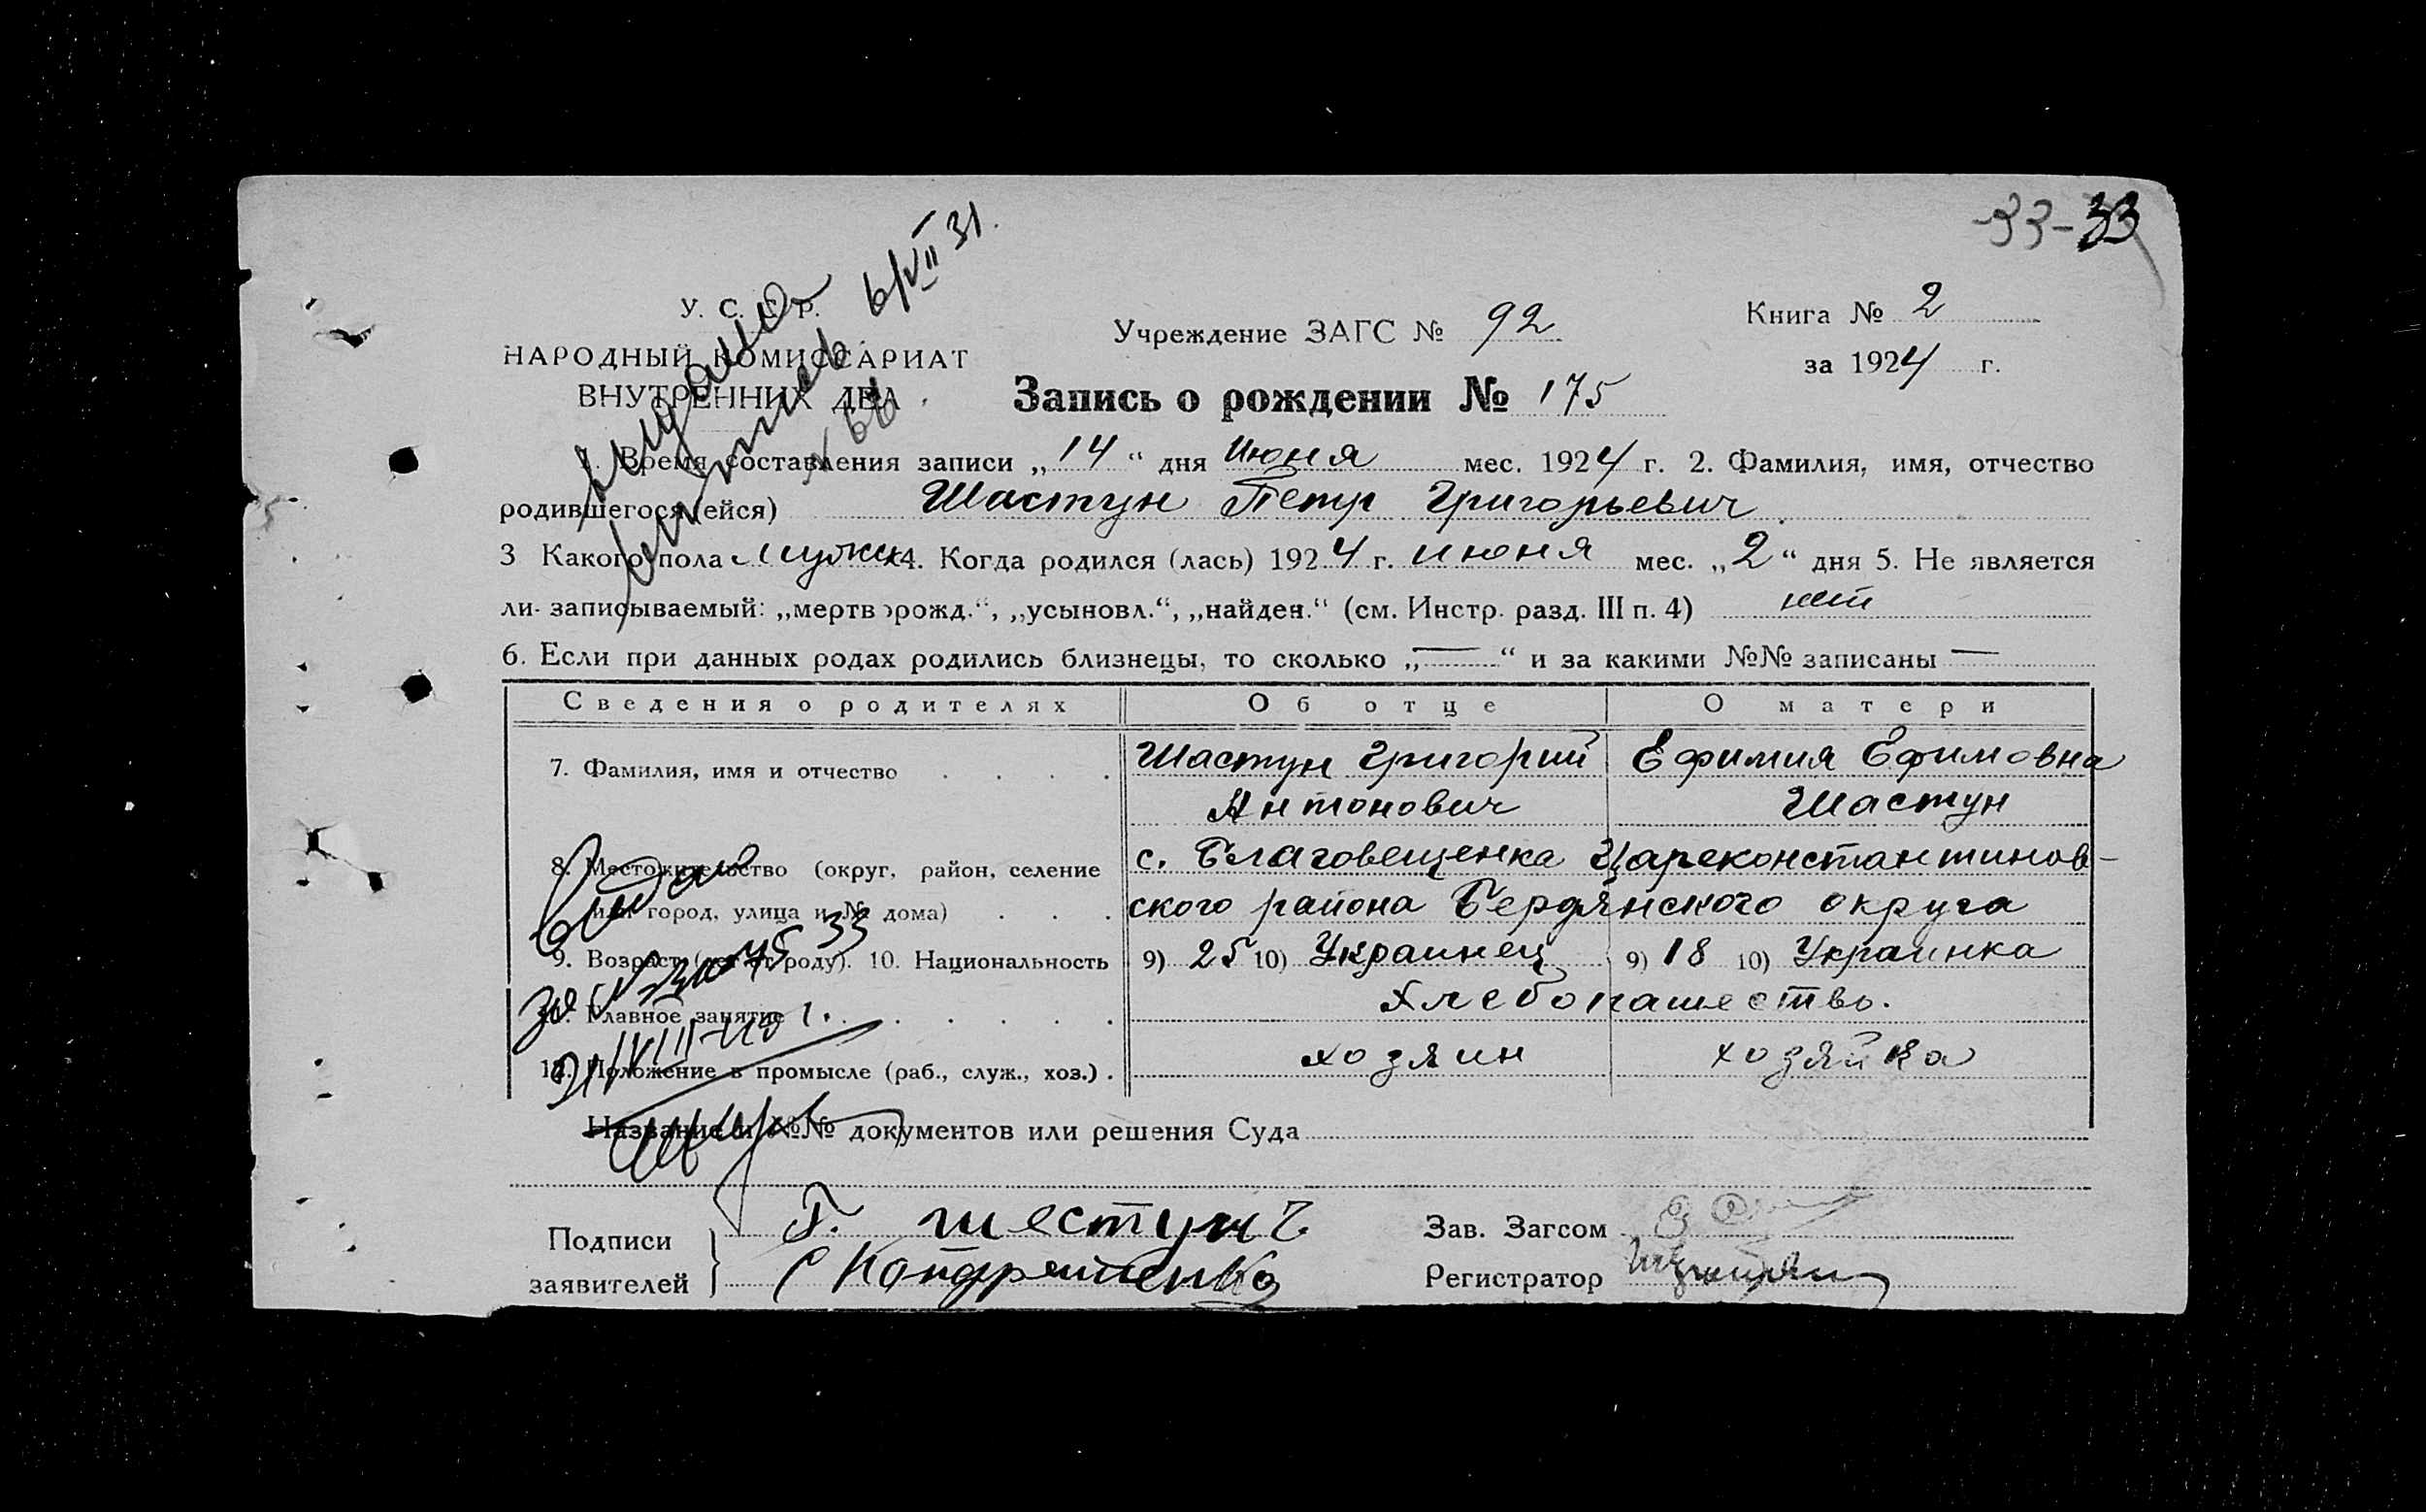 33-33
У. С. С. Р.
НАРОДНЫЙ КОМИССАРИАТ
ВНУТРЕННИХ ДЕЛ
6/VII 31.
Учреждение ЗАГС № 92
Книга № 2
за 1924 г.
Запись о рождении № 175
1. Время составления записи „14“ дня Июня мес. 1924 г. 2. Фамилия, имя, отчество
родившегося (ейся) Шастун Петр Григорьевич
3 Какого пола мужск 4. Когда родился (лась) 1924 г. июня мес. „2“ дня 5. Не является
ли записываемый: „мертворожд.“, „усыновл.“, „найден.“ (см. Инстр. разд. III п. 4) нет
6. Если при данных родах родились близнецы, то сколько „—“ и за какими №№ записаны —
Сведения о родителях Об отце О матери
7. Фамилия, имя и отчество . . . . Шастун Григорий Ефимия Ефимовна
Антонович Шастун
8. Местожительство (округ, район, селение с. Благовещенка Цареконстантинов-
или город, улица и № дома) . . . ского района Бердянского округа
9. Возраст (лет от роду). 10. Национальность 9) 25 10) Украинец 9) 18 10) Украинка
11. Главное занятие . . . . . . Хлебопашество.
12. Положение в промысле (раб., служ., хоз.) . хозяин хозяйка
Название и №№ документов или решения Суда
Подписи
заявителей
Г. шестунъ
С Кондратенко
Зав. Загсом
Регистратор